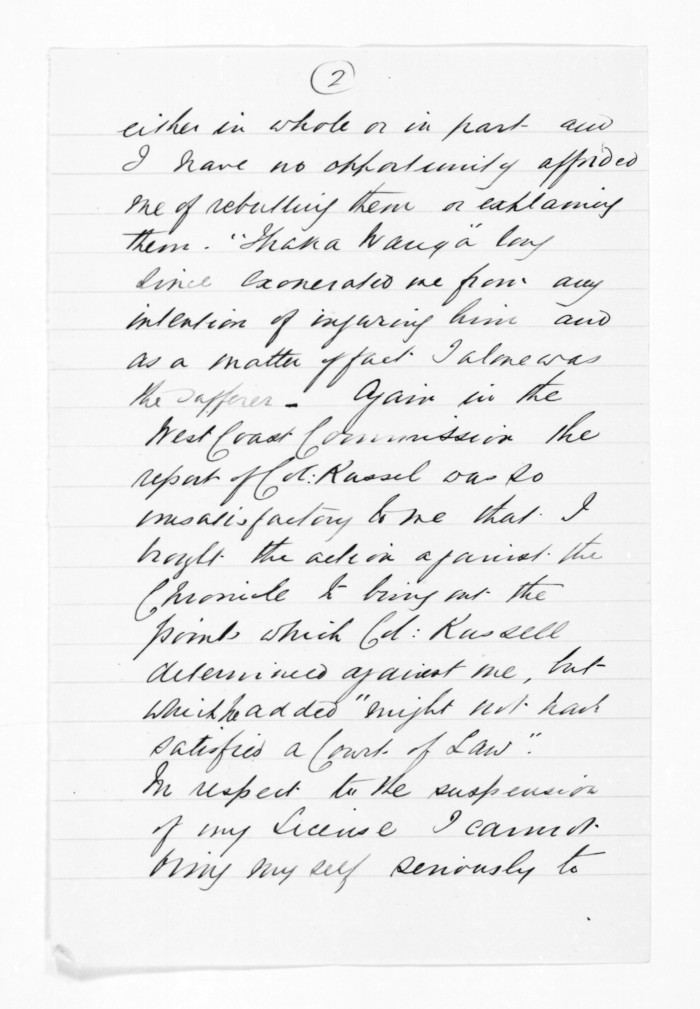 2
either in whole or in part and
I have no opportunity afforded
me of rebutting them or explaining
them. "Thaka Wanga" long
since exonerated me from any
intention of injuring him and
as a matter of fact I alone was
the sufferer - Again in the
West Coast Commission the
report of Col: Russel was so
unsatisfactory to me that I
brought the action against the
Chronicle to bring out the
points which Col: Russell
determined against me, but
which he added "might not have
satisfied a Court of Law".
In respect to the suspension
of my License I cannot
bring myself seriously to